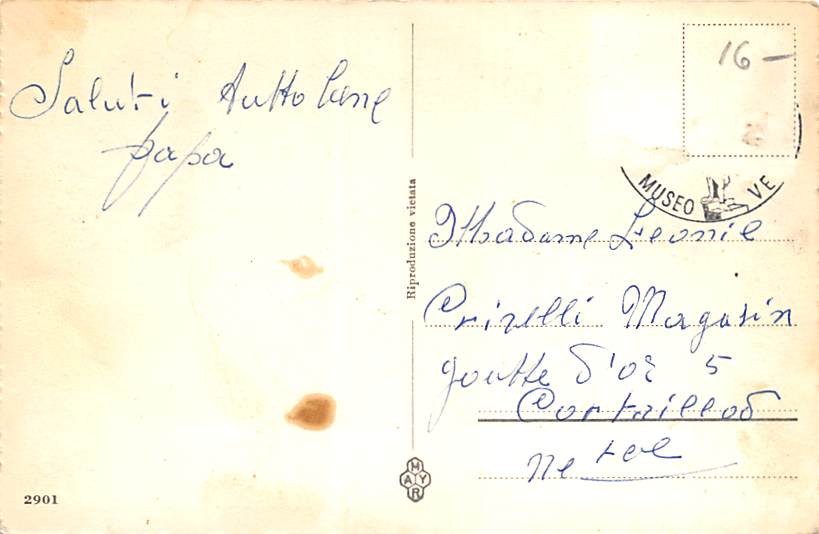 Saluti tutto bene
papa
Riproduzione vietata
2901
MAYR
16 -
MUSEO VE
Madame Leonie
Crivelli Magasin
goutte d'or 5
Cortaillod
Ne